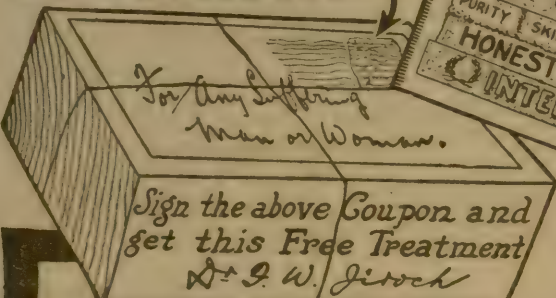 PURITY SKI
HONEST
INTE
For Any Suffering
Man or Woman.
Sign the above Coupon and
get this Free Treatment
Dr F. W. Jiroch